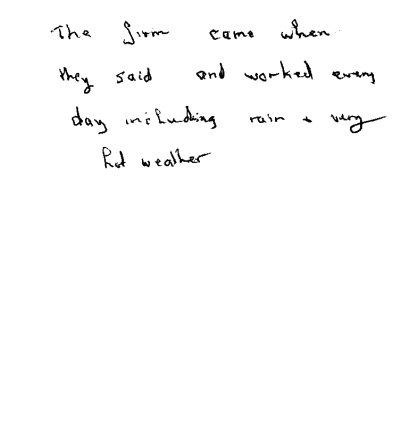 The firm came when
they said and worked every
day including rain + very
hot weather